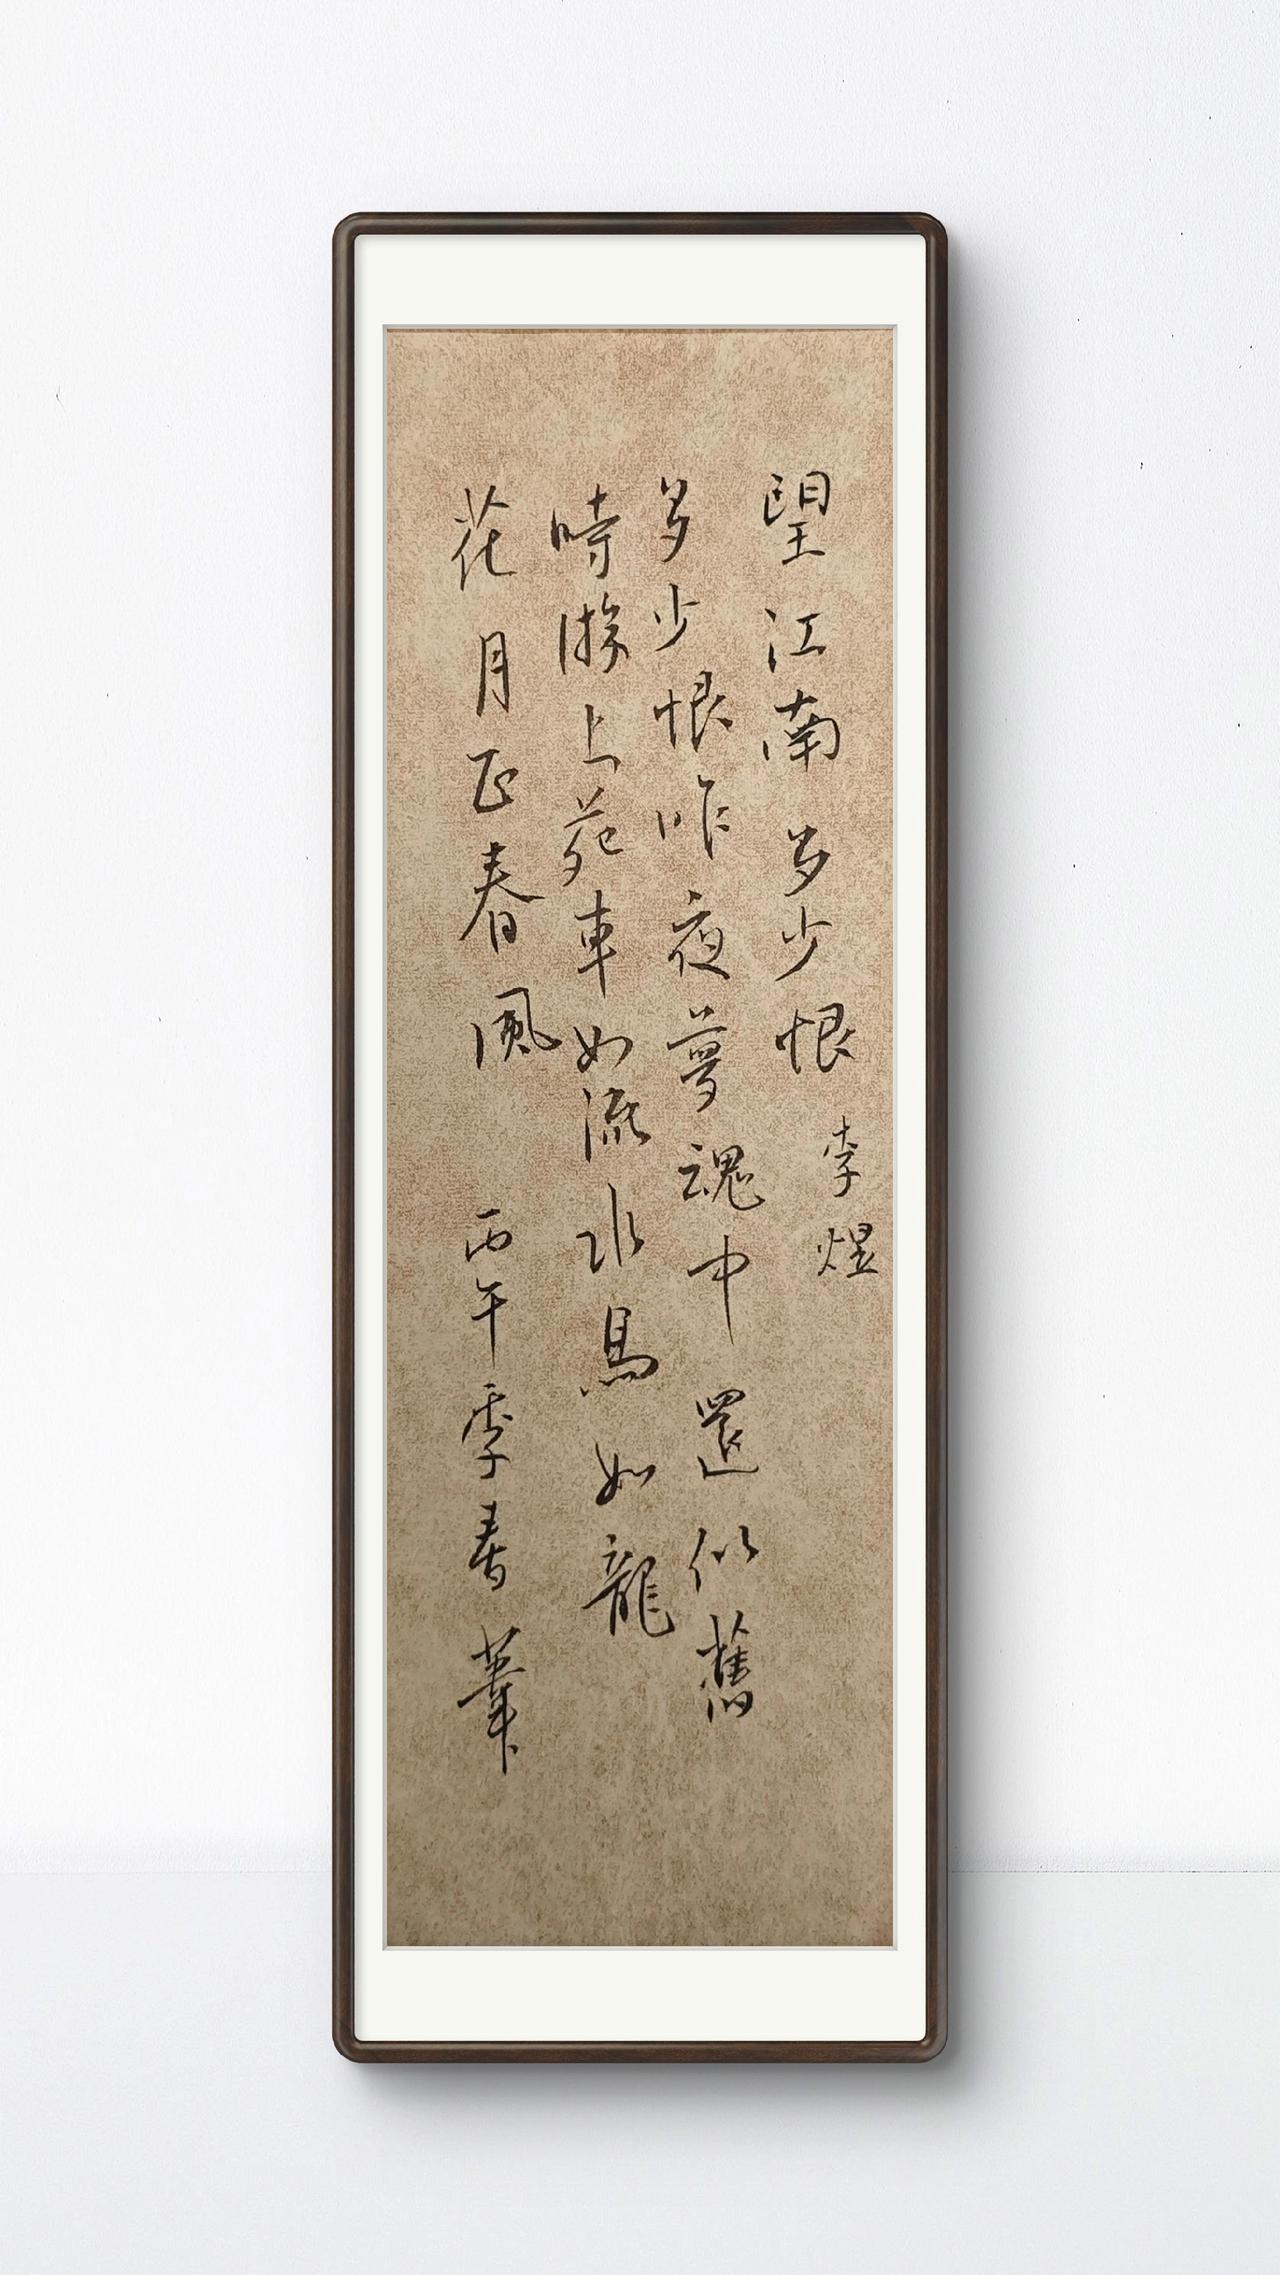 望江南 多少恨 李煜
多少恨昨夜夢魂中還似舊
時游上苑車如流水馬如龍
花月正春風 丙午季春 華